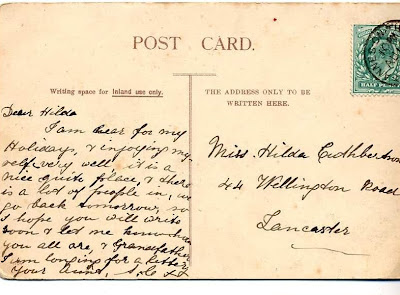 POST CARD.
Writing space for Inland use only.
Dear Hilda
I am hear for my
Holidays, & injoying my-
self very well, it is a
nice quit place, & there
is a lot of people in, we
go back tomorrow, so
I hope you will write
soon & let me know how
you all are, & Grandfather
I am longing for a letter,
Your Aunt,
THE ADDRESS ONLY TO BE
WRITTEN HERE.
Miss Hilda Cuthbertson
44 Wellington Road
Lancaster
HALF PENNY